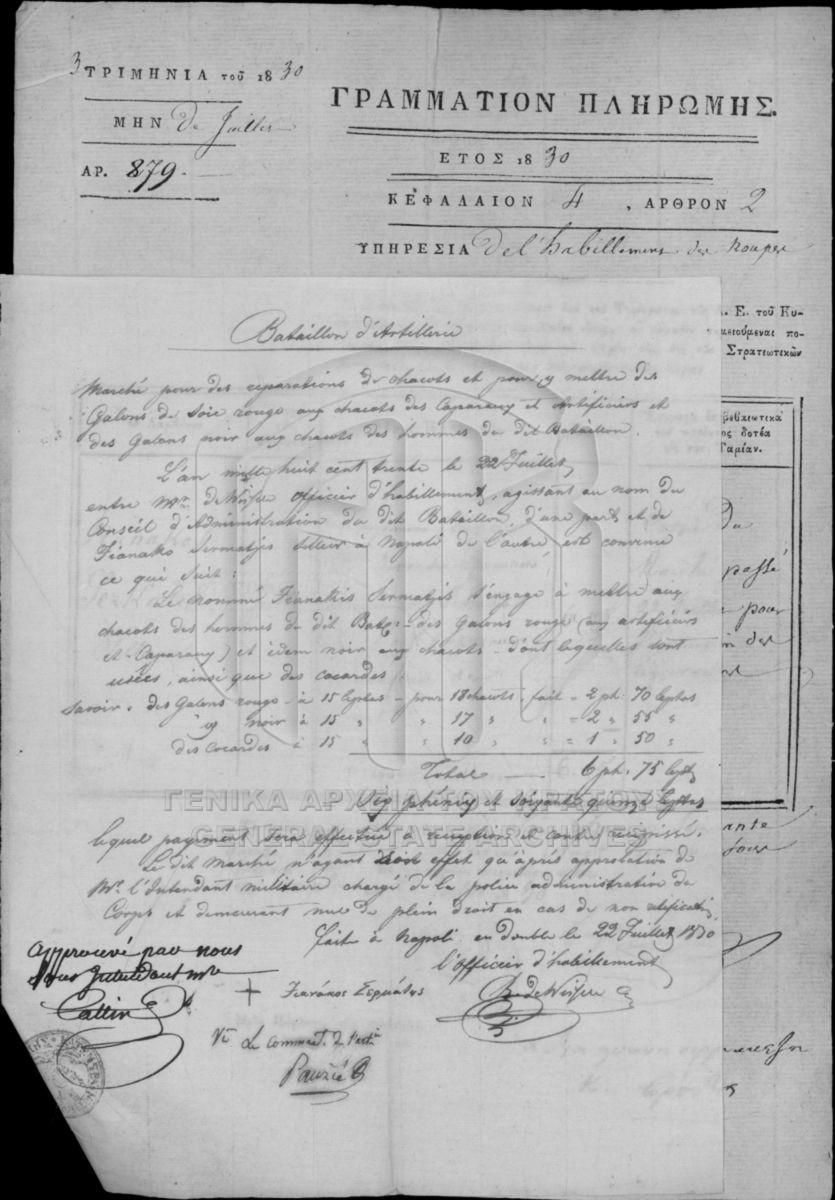 3 ΤΡΙΜΗΝΙΑ τοῦ 1830
ΜΗΝ De Juillet
ΑΡ. 879.
ΓΡΑΜΜΑΤΙΟΝ ΠΛΗΡΩΜΗΣ.
ΕΤΟΣ 1830
ΚΕΦΑΛΑΙΟΝ 4 , ΑΡΘΡΟΝ 2
ΥΠΗΡΕΣΙΑ De l'habillement des
Bataillon d'Artillerie
Marché pour des reparations de chacots et pour y mettre des
Galons de Soie rouge aux chacots des Caparaux et Artificiers et
des Galons noir aux chacots des hommes du dit Bataillon.
L'an mille huit cent trente le 22 Juillet
entre Mr. officier d'habillement, agissant au nom du
Conseil d'Administration du dit Bataillon, d'une part et de
Sermatjis Sellier à Napoli de l'autre est convenu
ce qui suit :
Le nommé Sermatjis s'engage à mettre aux
chacots des hommes du dit Bat. des Galons rouge (aux artificiers
et Caparaux) et idem noir aux chacots d'ont lequelles sont
usées, ainsi que des cocardes :
Savoir : des Galons rouge à 15 lyptas pour 18 chacots fait = 2 ph. 70 lyptas
noir à 15 " " 17 " " = 2 " 55 "
des Cocardes à 15 " " 10 " " = 1 " 50 "
Total 6 ph. 75 lypt
Six phénix et soixante quinze lyptas
lequel payment sera effectué à reception et contre recepissé.
Le dit Marché n'ayant effet qu'après approbation de
Mr. l'Intendant militaire chargé de la police administrative du
Corps et demeurant nul de plein droit en cas de non ratification
fait à Napoli, en double le 22 Juillet 1830
l'officier d'habillement
approuvé par nous
Sous Intendant mre
+ Σερμάτης
Vu Le Command. de l'art.
Pauzié
. Ε. τοῦ Κυ-
μειούμεναι πο-
Στρατιωτικῶν
βεβαιωτικὰ
ος δοτέα
Ταμίαν.
Du
passé
pour
des
ΓΕΝΙΚΑ ΑΡΧΕΙΑ ΤΟΥ ΚΡΑΤΟΥΣ
GENERAL STATE ARCHIVES